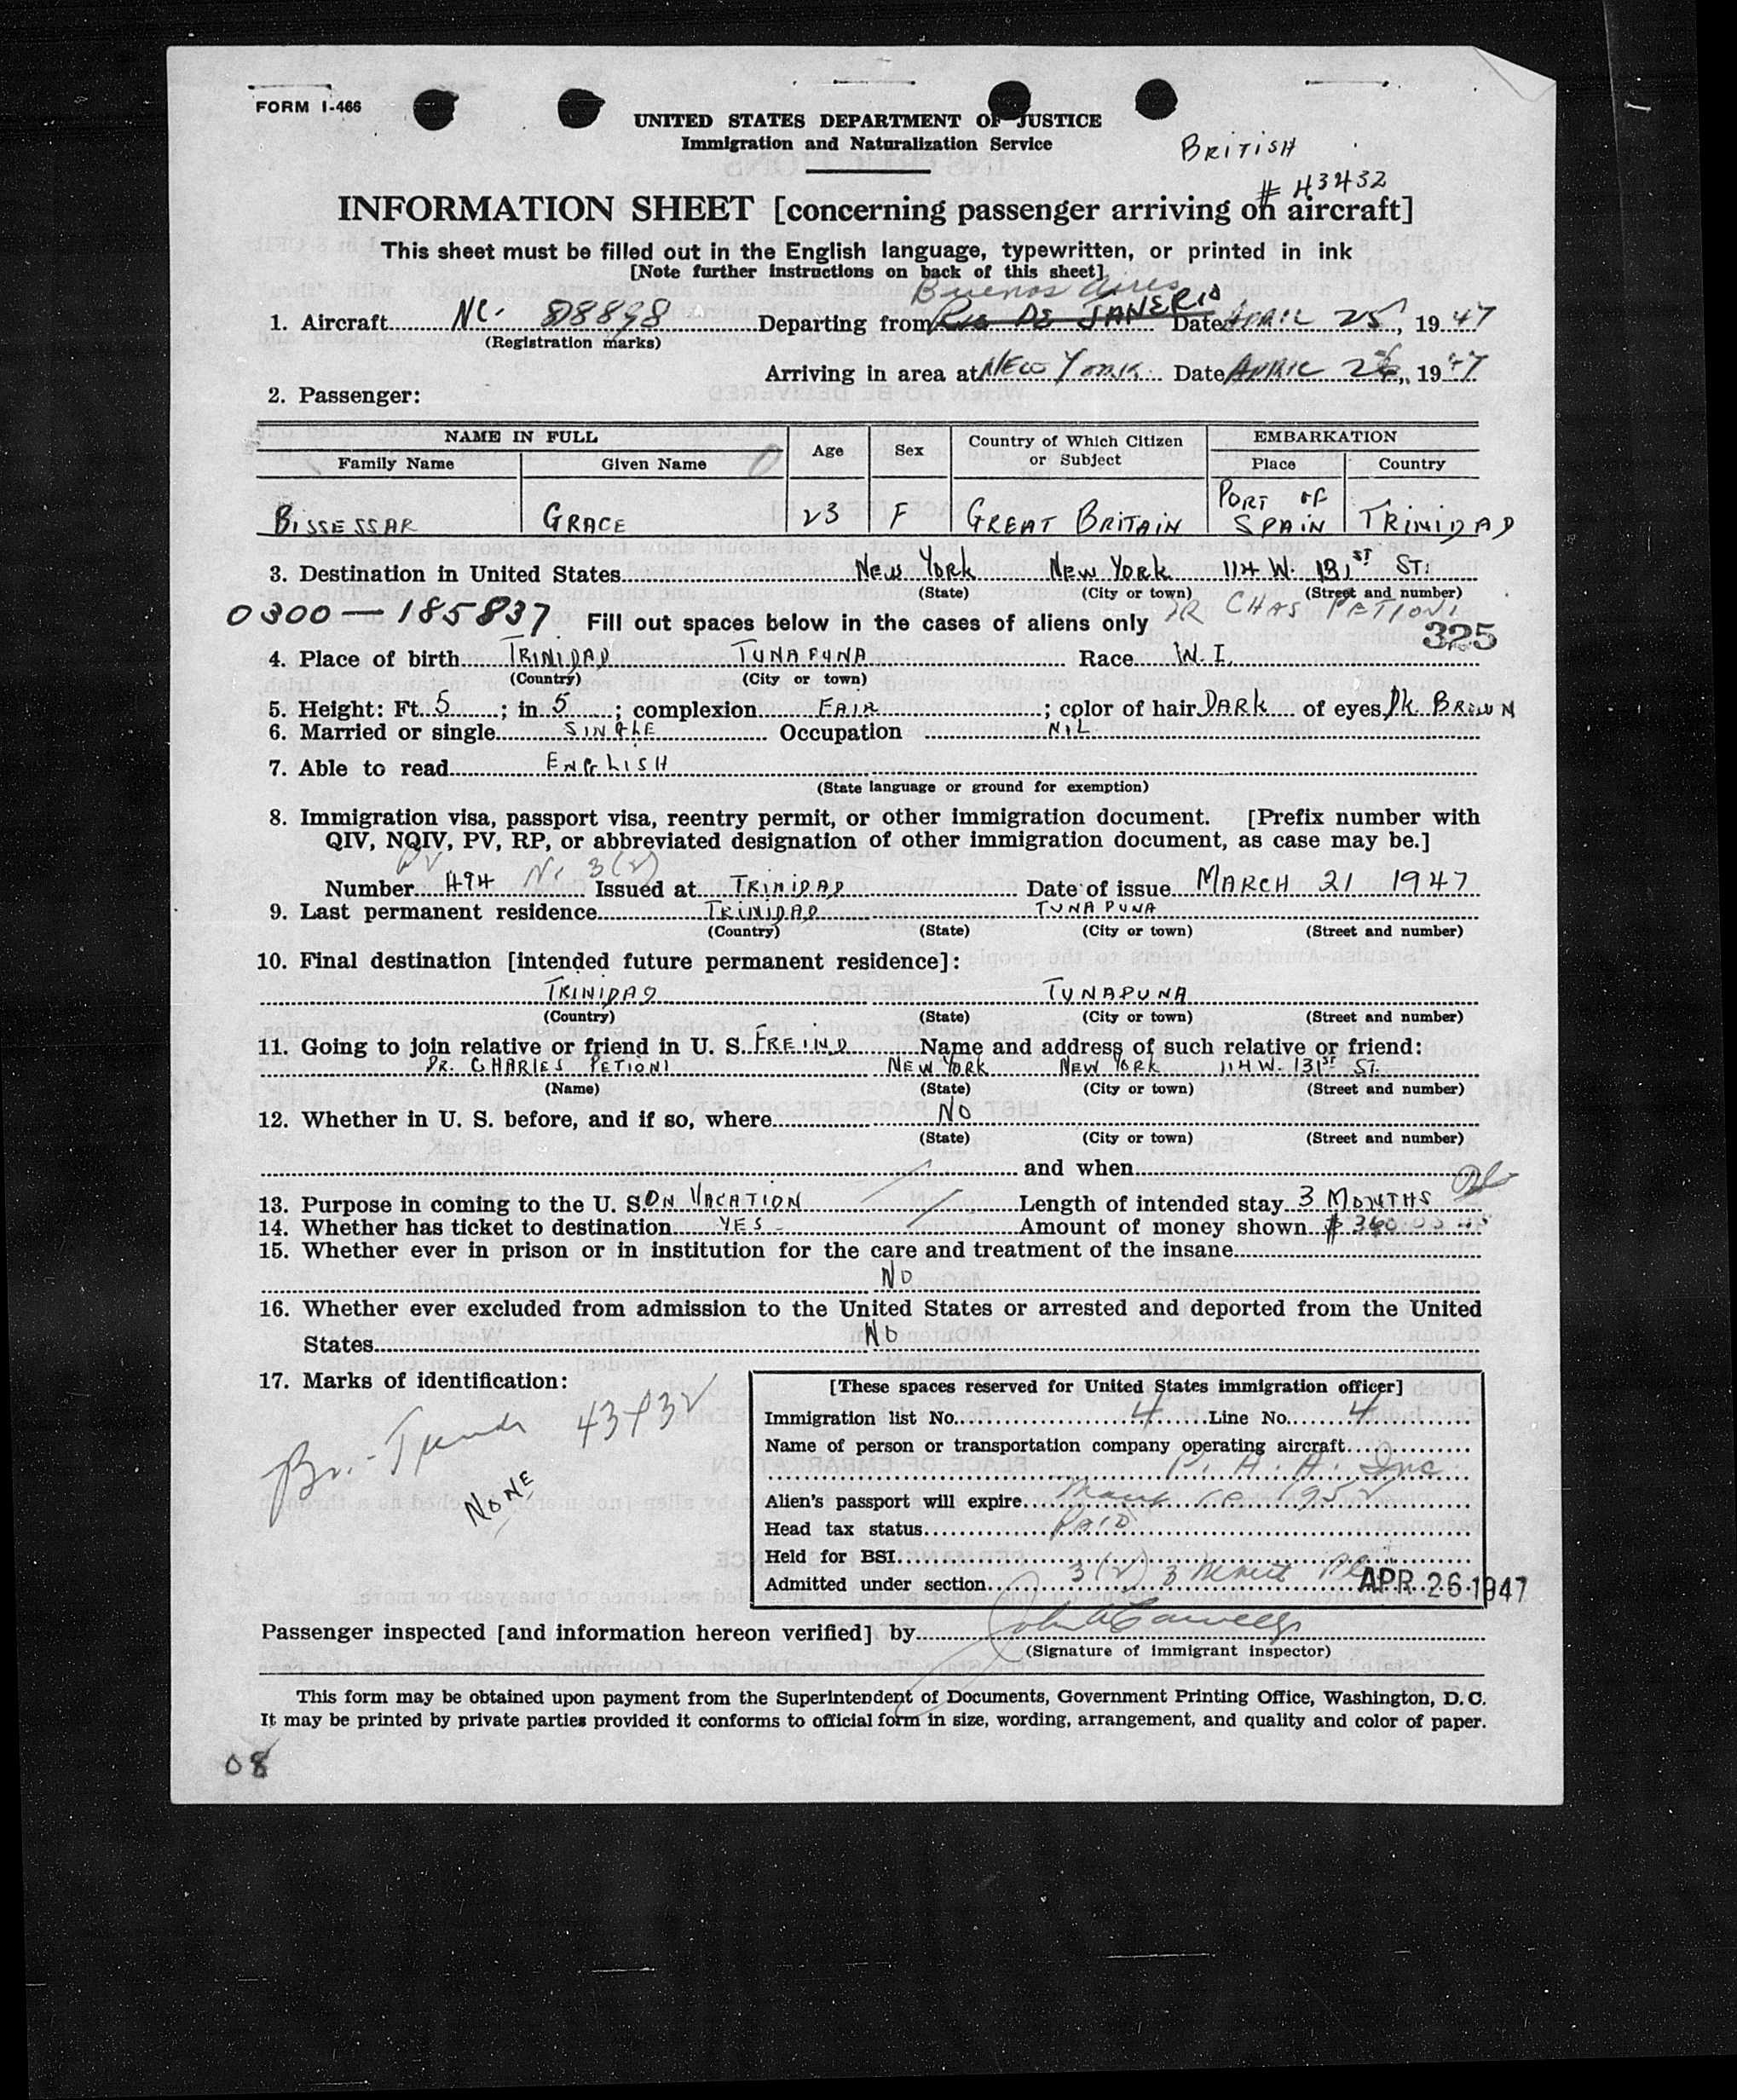 FORM I-466
UNITED STATES DEPARTMENT OF JUSTICE
Immigration and Naturalization Service
BRITISH
# 43432
INFORMATION SHEET [concerning passenger arriving on aircraft]
This sheet must be filled out in the English language, typewritten, or printed in ink
[Note further instructions on back of this sheet]
Buenos Aires
1. Aircraft NC. 88898 Departing from RIO DE JANERIO Date APRIL 25, 1947
(Registration marks)
Arriving in area at NEW YORK Date APRIL 26, 1947
2. Passenger:
NAME IN FULL Age Sex Country of Which Citizen or Subject EMBARKATION
Family Name Given Name Place Country
BISSESSAR GRACE 23 F GREAT BRITAIN PORT OF SPAIN TRINIDAD
3. Destination in United States NEW YORK NEW YORK 114 W. 131ST ST.
(State) (City or town) (Street and number)
0300-185837 Fill out spaces below in the cases of aliens only DR CHAS PETIONI
325
4. Place of birth TRINIDAD TUNAPUNA Race W.I.
(Country) (City or town)
5. Height: Ft. 5; in 5; complexion FAIR; color of hair DARK of eyes DK. BROWN
6. Married or single SINGLE Occupation NIL
7. Able to read ENGLISH
(State language or ground for exemption)
8. Immigration visa, passport visa, reentry permit, or other immigration document. [Prefix number with
QIV, NQIV, PV, RP, or abbreviated designation of other immigration document, as case may be.]
PV 3(2)
Number 494 Issued at TRINIDAD Date of issue MARCH 21 1947
9. Last permanent residence TRINIDAD TUNAPUNA
(Country) (State) (City or town) (Street and number)
10. Final destination [intended future permanent residence]:
TRINIDAD TUNAPUNA
(Country) (State) (City or town) (Street and number)
11. Going to join relative or friend in U. S. FREIND Name and address of such relative or friend:
DR. CHARLES PETIONI NEW YORK NEW YORK 114 W. 131ST ST.
(Name) (State) (City or town) (Street and number)
12. Whether in U. S. before, and if so, where NO
(State) (City or town) (Street and number)
and when
13. Purpose in coming to the U. S. ON VACATION Length of intended stay 3 MONTHS
14. Whether has ticket to destination YES Amount of money shown $ 360
15. Whether ever in prison or in institution for the care and treatment of the insane
NO
16. Whether ever excluded from admission to the United States or arrested and deported from the United
States NO
17. Marks of identification:
43432
NONE
[These spaces reserved for United States immigration officer]
Immigration list No. 4 Line No. 4
Name of person or transportation company operating aircraft
P. A. A. Inc.
Alien's passport will expire 1952
Head tax status PAID
Held for BSI
Admitted under section 3(2) 3
APR 26 1947
Passenger inspected [and information hereon verified] by
(Signature of immigrant inspector)
This form may be obtained upon payment from the Superintendent of Documents, Government Printing Office, Washington, D. C.
It may be printed by private parties provided it conforms to official form in size, wording, arrangement, and quality and color of paper.
08